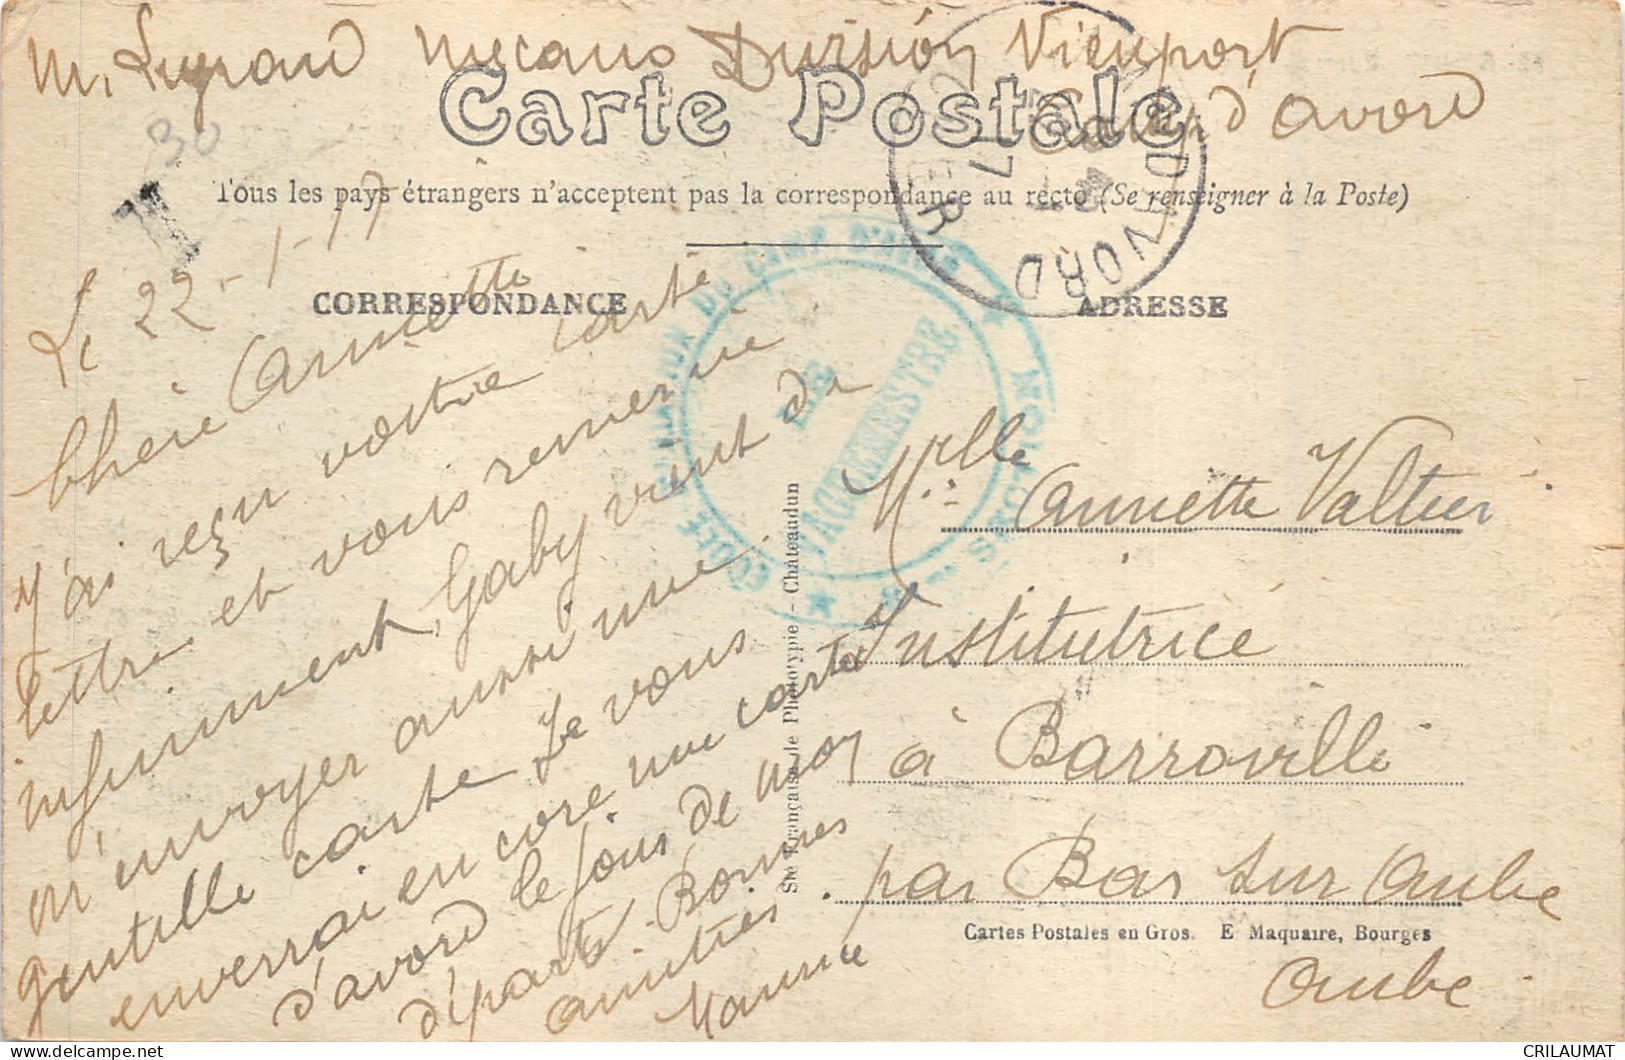 M. Legrand mecano Division Nieuport
Camp d'avord
Carte Postale
30
T
Tous les pays étrangers n'acceptent pas la correspondance au recto (Se renseigner à la Poste)
CORRESPONDANCE
ADRESSE
ECOLE D'AVIATION DU CAMP D'AVORD
LE VAGUEMESTRE
AVORD CHER
Le 22-1-17
Chère Annette
J'ai reçu votre carte
lettre et vous remercie
infiniment, Gaby vient de
m'envoyer aussi une
gentille carte Je vous
enverrai encore une carte
d'avord le jour de mon
départ. Bonnes
amitiés.
Maurice
Melle Annette Valtier
Institutrice
à Barroville
par Bar sur Aube
Aube
Sté Française de Phototypie - Châteaudun
Cartes Postales en Gros. E Maquaire, Bourges
CRILAUMAT